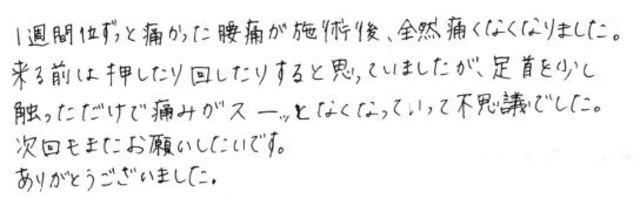 1週間位ずっと痛かった腰痛が施術後、全然痛くなくなりました。
来る前は押したり回したりすると思っていましたが、足首を少し
触っただけで痛みがスーッとなくなっていって不思議でした。
次回もまたお願いしたいです。
ありがとうございました。